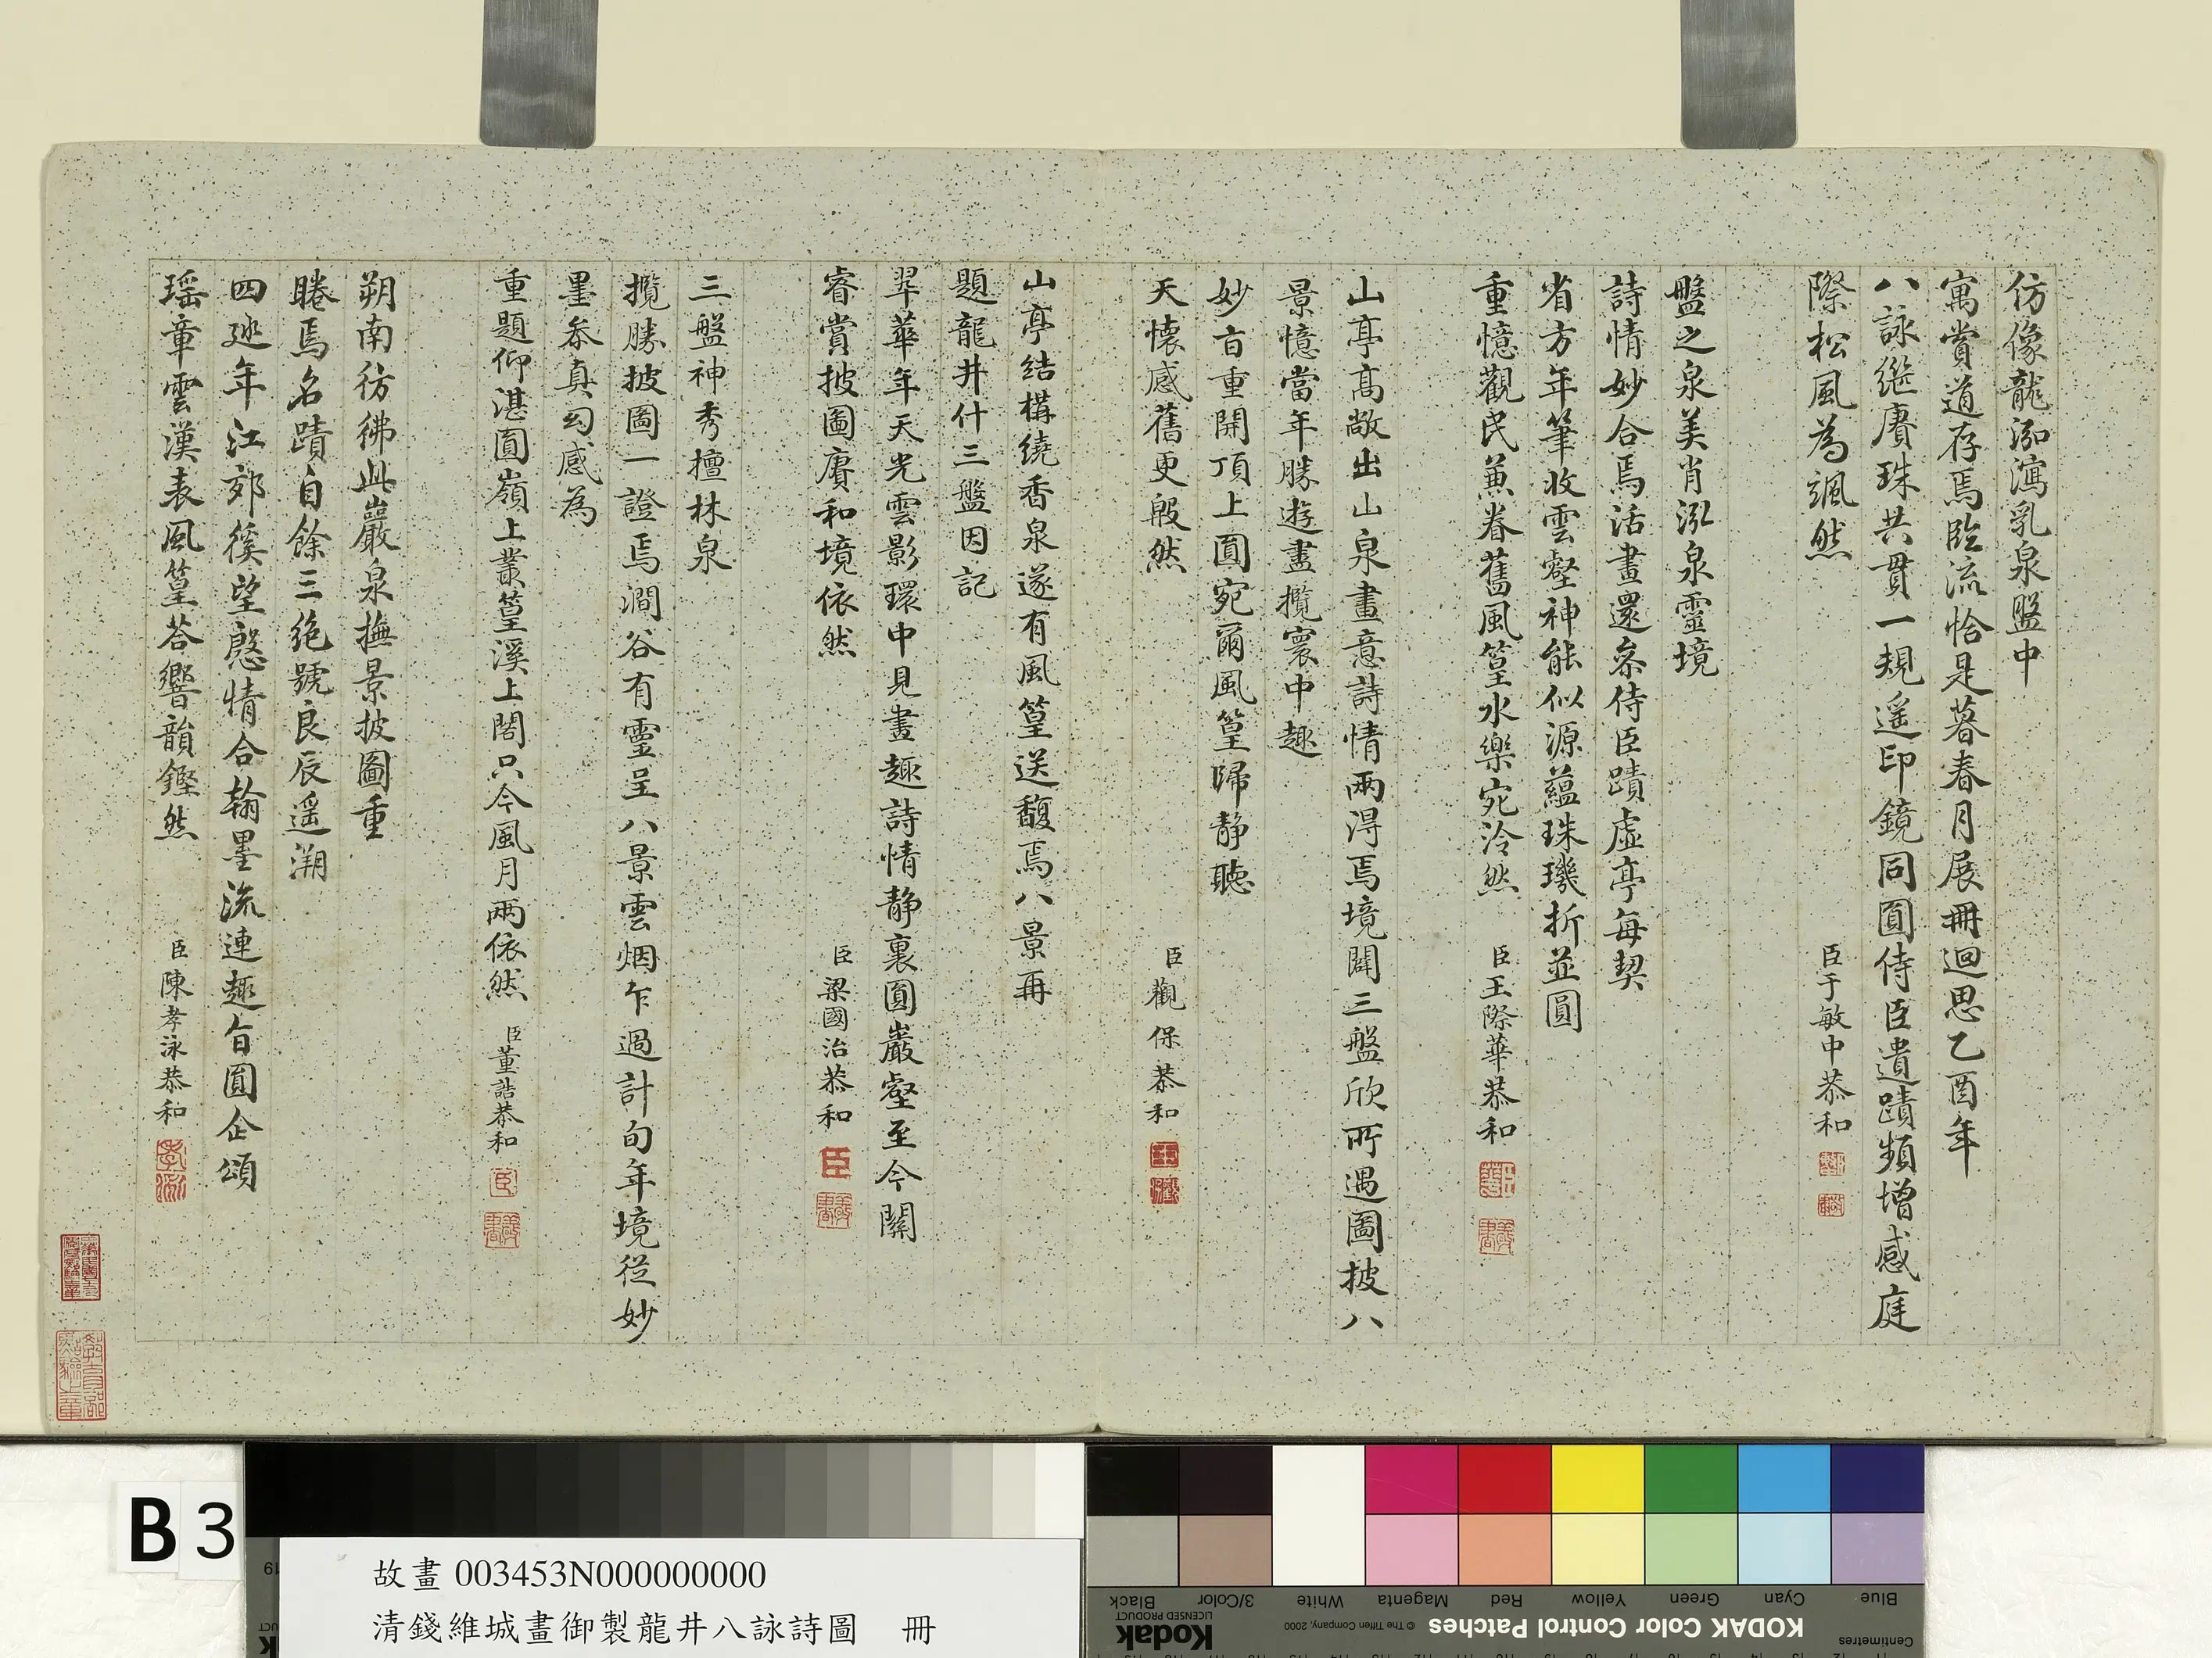 仿像龍泓瀉乳泉盤中
寓賞道存焉臨流恰是暮春月展冊迴思乙酉年
八詠繼賡珠共貫一規遥印鏡同圓侍臣遺蹟頻增感庭
際松風為颯然
臣于敏中恭和
盤之泉美肖泓泉靈境
詩情妙合焉活畫還叅侍臣蹟虛亭每契
省方年筆收雲壑神能似源蘊珠璣折並圓
重憶觀民蕙眷舊風篁水樂宛泠然
臣王際華恭和
山亭髙敞出山泉畫意詩情兩淂焉境闢三盤欣所遇圖披八
景憶當年勝遊盡攬寰中趣
妙旨重開頂上圓宛爾風篁歸静聽
天懷感舊更殷然
臣觀保恭和
山亭结構繞香泉遂有風篁送馥焉八景再
題龍井什三盤因記
翠華年天光雲影環中見畫趣詩情静裏圓巖壑至今關
睿賞披圖賡和境依然
臣梁國治恭和
三盤神秀擅林泉
攬勝披圖一證焉澗谷有靈呈八景雲烟乍過計旬年境從妙
墨叅真幻感為
重題仰湛圓嶺上叢篁溪上閣只今風月兩依然
臣董誥恭和
朔南彷彿此巖泉撫景披圖重
睠焉名蹟自餘三絶號良辰遥溯
四廵年江郊徯望慇情合翰墨流連趣旨圓企頌
瑶章雲漢表風篁荅響韻鏗然
臣陳孝泳恭和
B 3
故畫 003453N000000000
清錢維城畫御製龍井八詠詩圖 冊
Blue Cyan Green Yellow Red Magenta White 3/Color Black
Centimetres KODAK Color Control Patches © The Tiffen Company, 2000 Kodak LICENSED PRODUCT